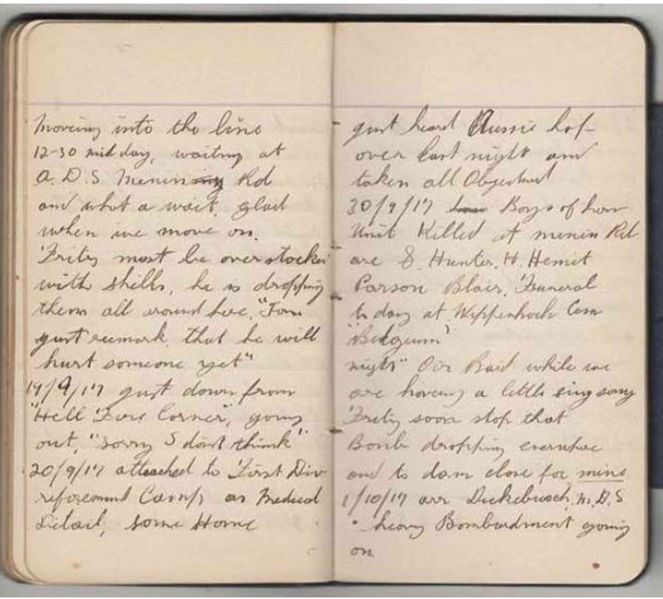 moveing into the line
12-30 mid day, waiting at
A.D.S Menin Rd
and what a wait, glad
when we move on.
Fritz must be overstocked
with shells, he is dropping
them all around here, "Tom
just remark that he will
hurt someone yet"
19/9/17 just down from
"Hell Fire Corner", going
out, "sorry I dont think"
20/9/17 attached to First Div
reforcement Camp, as Medical
Detail, some Home
just heard Aussie hop
over last night and
taken all Objectust
30/9/17 Boys of how
Unit Killed at menin Rd
are S. Hunter, H.
Parson Blair, Funeral
to day at Wippenhock Cem
"Belgium"
night" Air Raid while we
are having a little sing song
Fritz soon stop that
Bomb dropping everwhee
and to dam close for mine
1/10/17 arr Dickebusch, M.D.S
" heavy Bombardment going
on